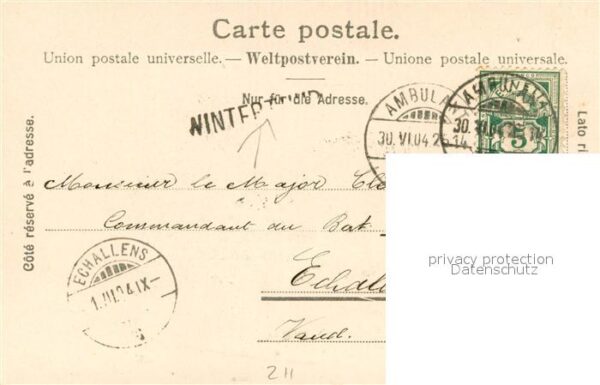 Carte postale.
Union postale universelle. — Weltpostverein. — Unione postale universale.
Nur für die Adresse.
WINTERTHUR
AMBULANT
30.VI.04 2
AMBULANT
30.VI.04
5
Côté réservé à l'adresse.
Lato ri
Monsieur le Major
Commandant du Bat
Echal
Vaud.
ECHALLENS
1.VII.04.IX—
privacy protection
Datenschutz
211